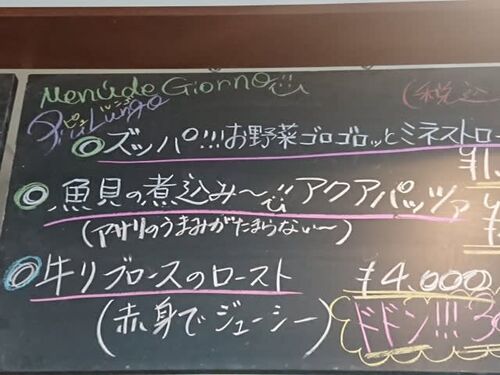 Menú de Giorno
(税込
Più Lungo
ズッパ!!!お野菜ゴロゴロッとミネストロー
¥1,
魚貝の煮込み〜 アクアパッツァ
(アサリのうまみがたまらない〜)
牛リブロースのロースト ¥4,000
(赤身でジューシー) ドドン!!! 30